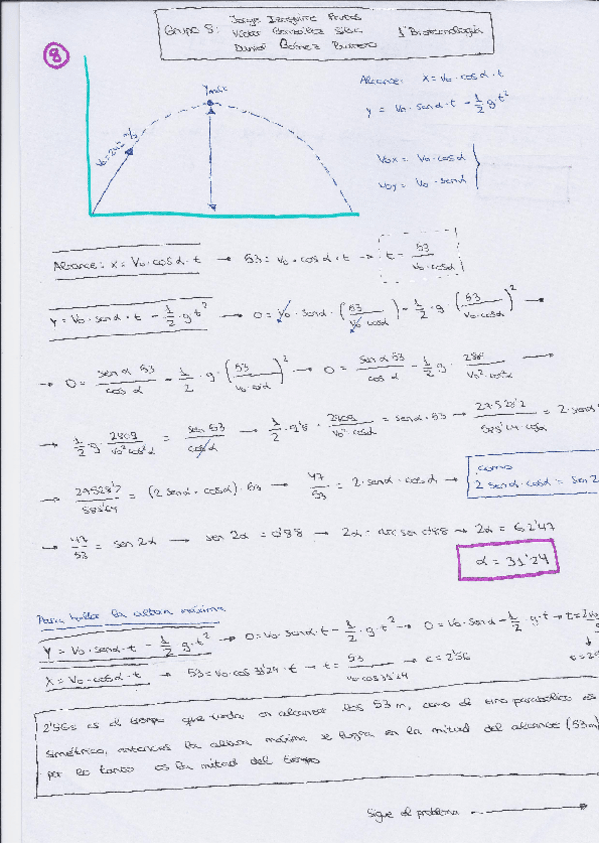 Grupo 8: Jorge Izquierdo
Víctor González
Daniel Gómez
1º Biotecnología
8
Ymáx
V₀=24'2 m/s
Alcance: x = v₀ · cosα · t
y = v₀ · senα · t - 1/2 g t²
V₀x = V₀ · cosα
V₀y = V₀ · senα
Alcance: x = V₀ · cosα · t → 53 = v₀ · cosα · t → t = 53/(v₀ · cosα)
Y = V₀ · senα · t - 1/2 · g t² → 0 = V₀ · senα · (53/(V₀ cosα)) - 1/2 · g (53/(V₀ · cosα))² →
→ 0 = senα 53/cosα - 1/2 · g · (53/(V₀ · cosα))² → 0 = senα 53/cosα - 1/2 · g · /(V₀² · cos²α) →
→ 1/2 g · 2809/(V₀² cos²α) = sen 53/cosα → 1/2 · 9'8 · 2809/(V₀² cosα) = senα · 53 → /(585'64 · cosα) = 2 · senα
→ /585'64 = (2 senα · cosα) · 53 → 47/53 = 2 · senα · cosα →
como
2 senα · cosα = sen 2
→ 47/53 = sen 2α → sen 2α = 0'88 → 2α = arc sen 0'88 → 2α = 62'47
α = 31'24
Para hallar la altura máxima
Y = V₀ · senα · t - 1/2 · g · t² → 0 = V₀ · senα · t - 1/2 · g · t² → 0 = V₀ · senα - 1/2 g · t → t =
X = V₀ · cosα · t → 53 = V₀ · cos 31'24 · t → t = 53/(V₀ cos 31'24) → t = 2'56
2'56s es el tiempo que tarda en alcanzar los 53 m, como el tiro parabólico es
simétrico, entonces la altura máxima se logra en la mitad del alcance (53m)
por lo tanto es la mitad del tiempo
Sigue el problema →